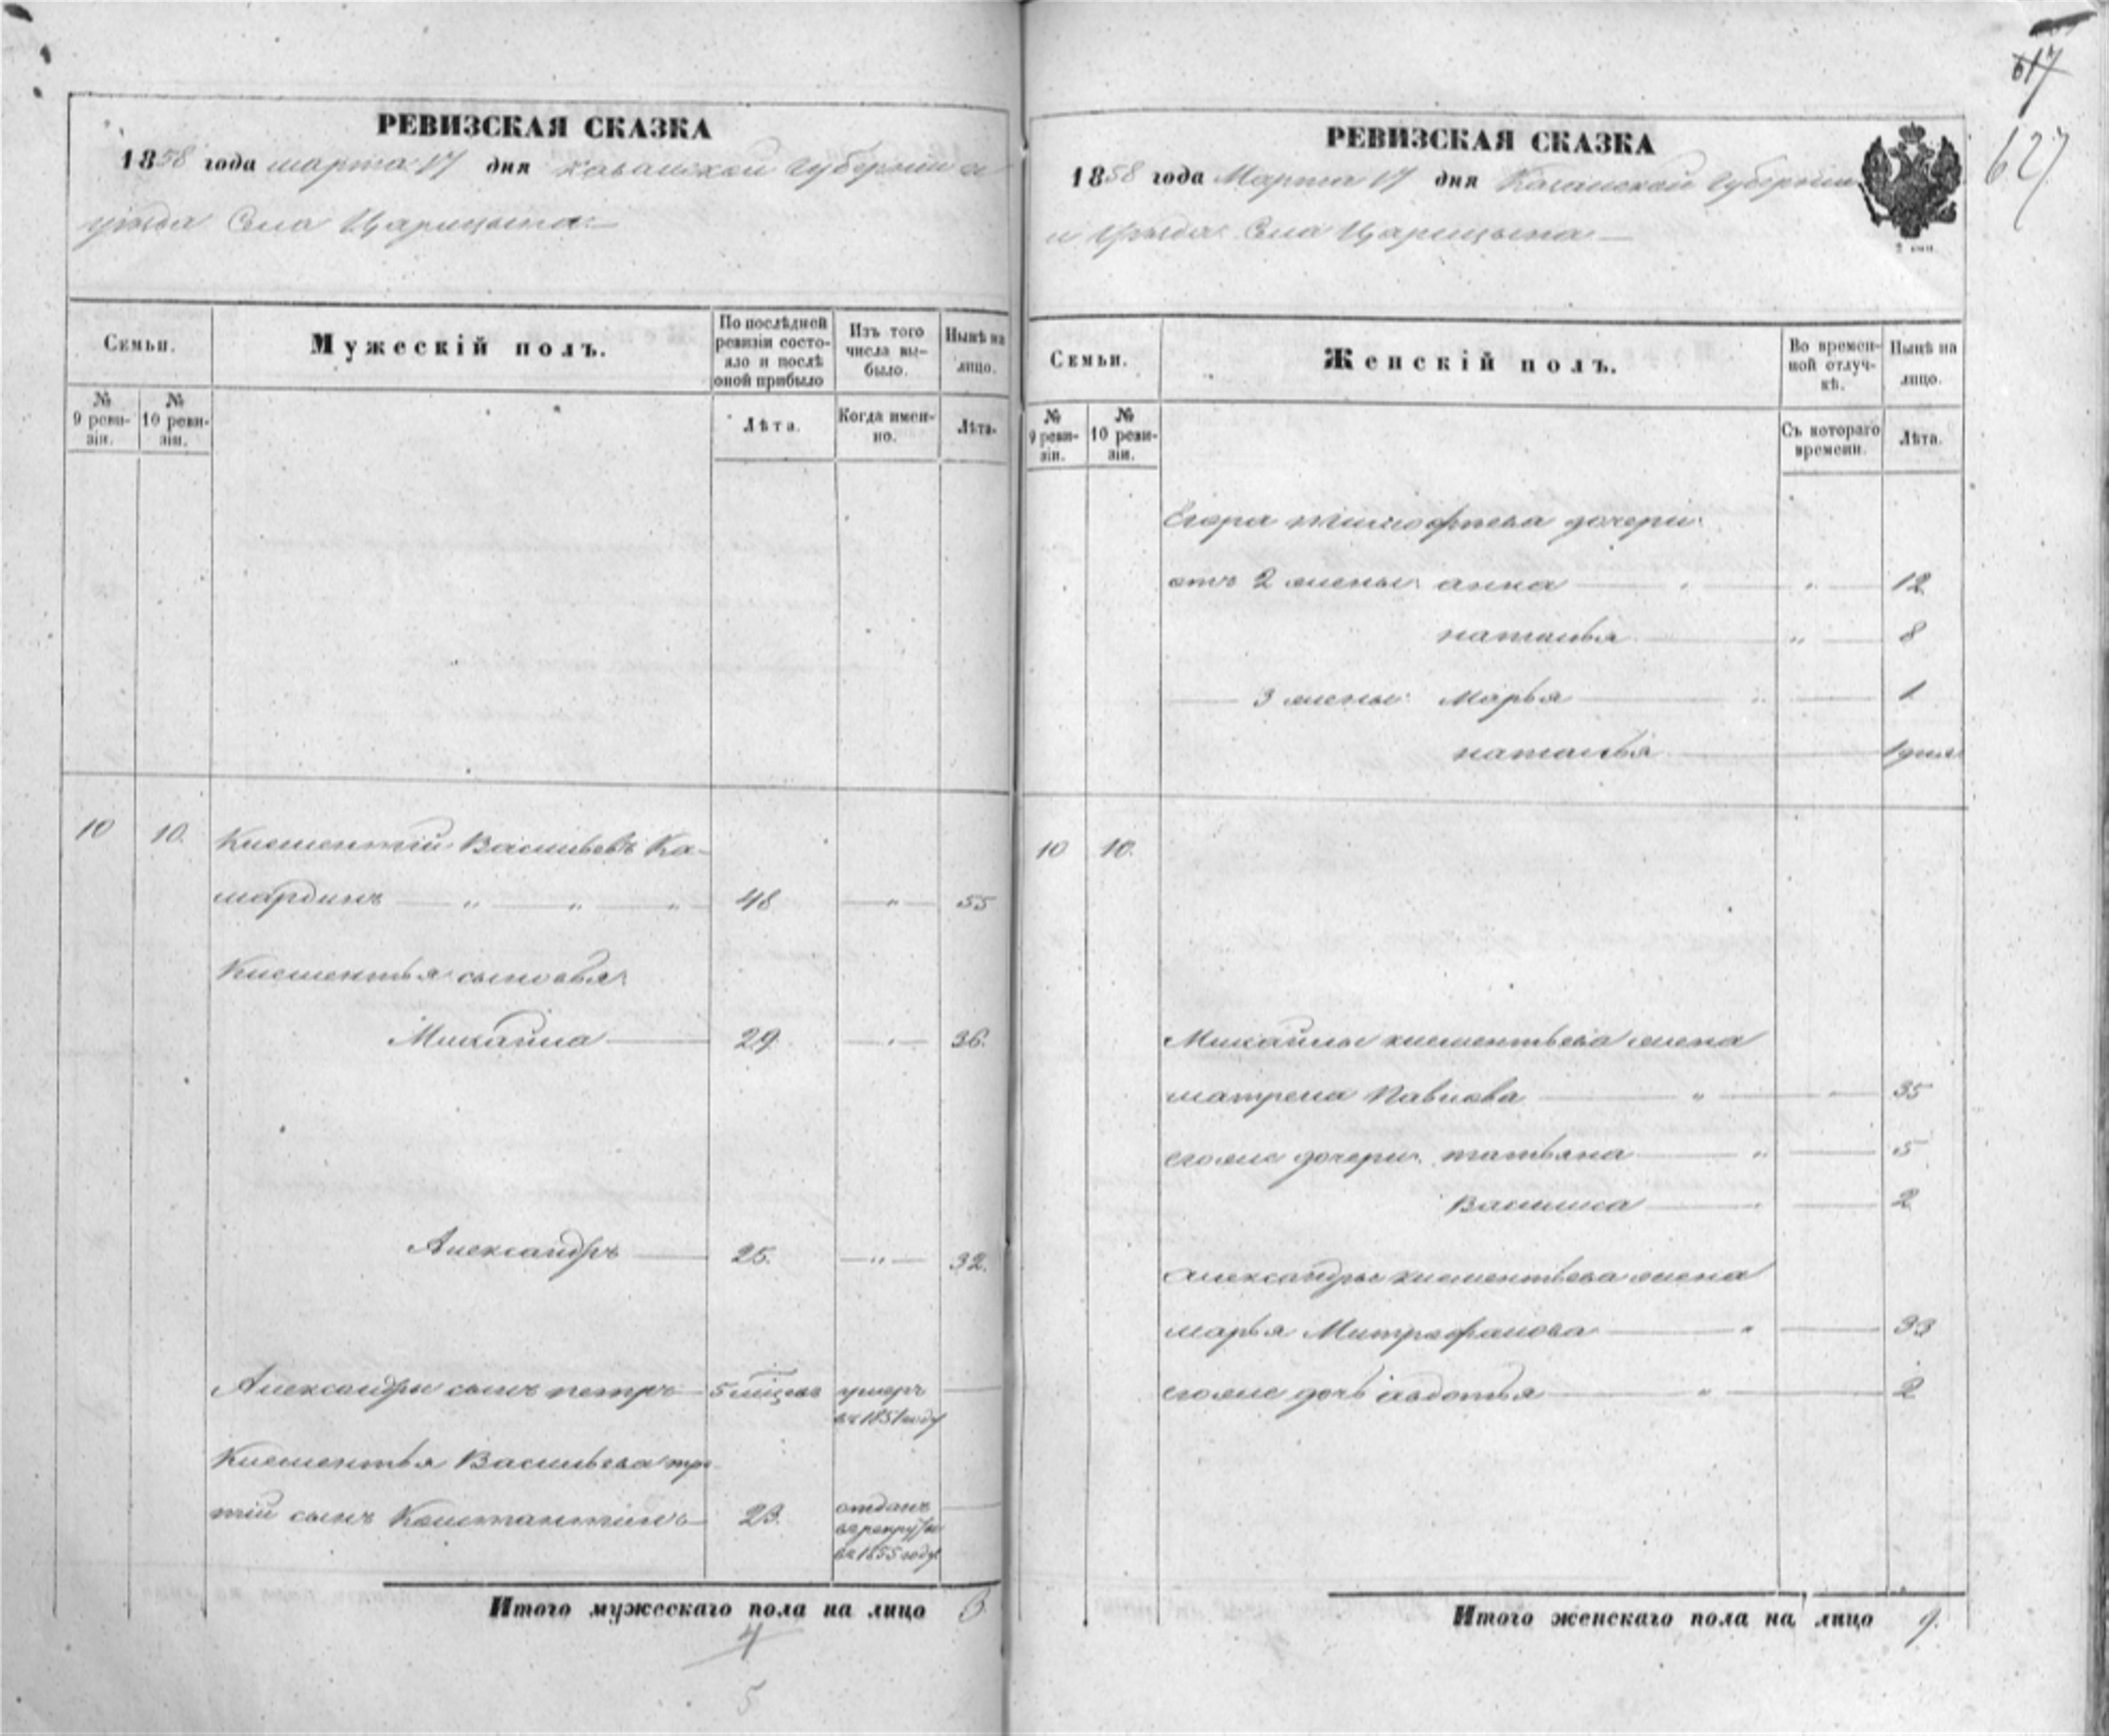 617
627
РЕВИЗСКАЯ СКАЗКА
1858 года марта 17 дня Казанской Губернии и
уѣзда Села Царицына
Семьи.
Мужескій полъ.
По послѣдней ревизіи состояло и послѣ оной прибыло
Изъ того числа вы-было.
Нынѣ на лицо.
№ 9 реви-зіи.
№ 10 реви-зіи.
Лѣта.
Когда имен-но.
Лѣта.
10 10. Клементій Васильевъ Ка-
мардинъ — „ — „ — „ 48 „ 55
Клементья сыновья:
Михайла 29 „ 36.
Александръ 25. „ 32.
Александры сынъ петръ 5 мѣцовъ умеръ
въ 1851 году
Клементья Васильева тре-
тій сынъ Константинъ 23. отданъ
въ рекруты
въ 1855 году
Итого мужескаго пола на лицо 3.
4
5
РЕВИЗСКАЯ СКАЗКА
1858 года Марта 17 дня Казанской Губернии
и Уѣзда Села Царицына
2 коп.
Семьи.
Женскій полъ.
Во времен-ной отлуч-кѣ.
Нынѣ на лицо.
№ 9 реви-зіи.
№ 10 реви-зіи.
Съ котораго времени.
Лѣта.
Егора тимофѣева дочери:
отъ 2 жены: анна „ „ 12
наталья „ 8
3 жены: Марья „ 1
наталья 1 дня
10 10.
Михайлы клементьева жена
матрена Павлова „ 35
егоже дочери: татьяна „ 5
Василиса 2
александры клементьева жена
марья Митрофанова „ 33
егоже дочь авдотья „ 2
Итого женскаго пола на лицо 9.